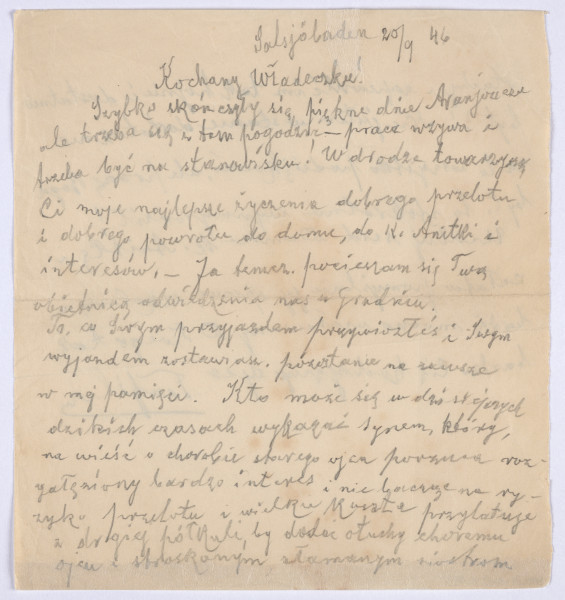 Salsjöbaden 20/9 46
Kochany Władeczku!
Szybko skończyły się piękne dnie Aranjuezu
ale trzeba się z tem pogodzić – praca wzywa i
trzeba być na stanowisku! W drodze towarzyszą
Ci moje najlepsze życzenia dobrego przelotu
i dobrego powrotu do domu, do K. Anitki i
interesów. – Ja temcz. pocieszam się Twą
obietnicą odwiedzenia nas w Grudniu.
To, co Swym przyjazdem przywiozłeś i Swym
wyjazdem zostawiasz. pozostanie na zawsze
w mej pamięci. Kto może się w dzisiejszych
dzikich czasach wykazać synem, który,
na wieść o chorobie starego ojca porzuca roz-
gałęziony bardzo interes i nie bacząc na ry-
zyko przelotu i wielkie koszta przylatuje
z drugiej półkuli, by dodać otuchy choremu
ojcu i stroskanym złamanym siostrom